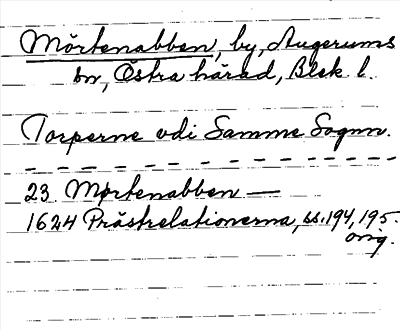 Mörtenabben, by, Augerums
sn, Östra härad, Blek. l.
Torperne udi Samme Sognn.
23 Mørtenabben —
1624 Prästrelationerna, ss. 194, 195.
orig.